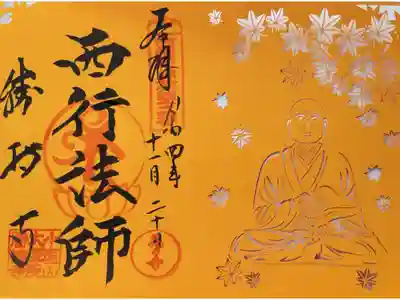 奉拝
令和四年
十一月二十日
西行法師
勝持寺